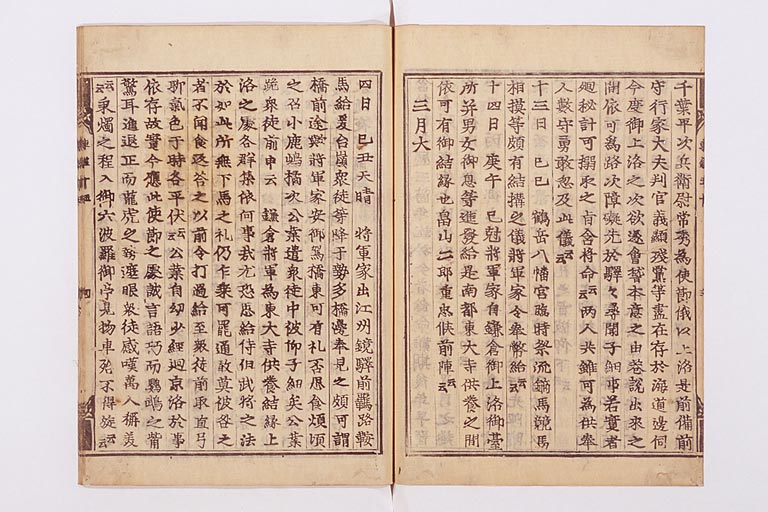 千葉平次兵衛尉常秀為使節俄以上洛是前備前
守行家大夫判官義顯殘黨等盡在存於海道邊伺
今度御上洛之次欲遂會稽本意之由巷說出來之
間依可為路次障礙先於驛々尋聞子細若實者
廻秘計可搦取之旨含將命云云兩人共雖可為供奉
人數守勇敢忽及此儀云云
十三日 己巳 鶴岳八幡宮臨時祭流鏑馬競馬
相撲等頗有結搆之儀將軍家令奉幣給云云
十四日 庚午 巳尅將軍家自鎌倉御上洛御臺
所并男女御息等進發給是南都東大寺供養之間
依可有御結緣也畠山二郎重忠候前陣云云
三月大
四日 己丑天晴 將軍家出江州鏡驛前羈路鞍
馬給爰台嶺衆徒等降于勢多橋邊奉見之頗可謂
橋前途歟將軍家安御駕橋東可有礼否思食煩頃
之召小鹿嶋橘次公葉遣衆徒中被仰子細矣公葉
跪衆徒前申云 鎌倉將軍為東大寺供養結緣上
洛之處各群集依何事哉尤恐思給侍但武將之法
於如此所無下馬之礼仍乍乘可罷通敢莫被咎之
者不聞食返答之以前令打過給至衆徒前取直弓
聊氣色于時各平伏云云公葉自幼少經廻京洛於事
依存故實今應此使節之處誠言語巧而鸚鵡之觜
驚耳進退正而龍虎之勢遮眼衆徒感嘆萬人稱美
云云秉燭之程入御六波羅御亭見物車不得旋云云